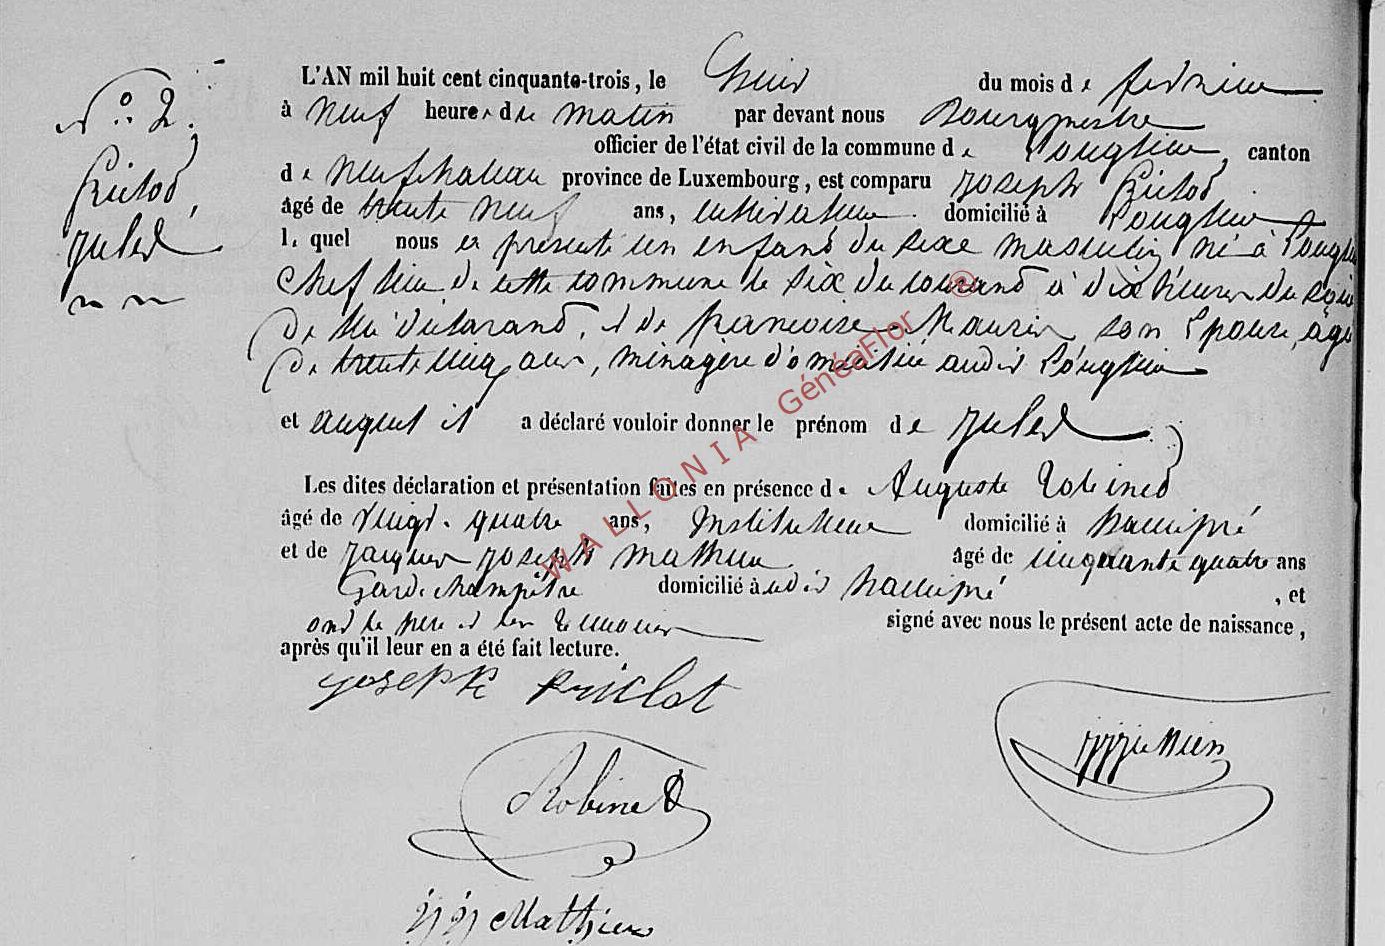 N° 2.
Priclot,
Jules
L'AN mil huit cent cinquante-trois, le huit du mois de février
à neuf heures du matin par devant nous Bourgmestre
officier de l'état civil de la commune de Longlier, canton
de Neufchateau province de Luxembourg, est comparu Joseph Priclot
âgé de trente neuf ans, cultivateur domicilié à Longlier
lequel nous a présenté un enfant du sexe masculin né à Longlier
chef lieu de cette commune le six du courant à dix heures du soir
de lui déclarant, et de françoise Maurin son épouse, âgée
de trente cinq ans, ménagère domiciliée audit Longlier
et auquel il a déclaré vouloir donner le prénom de Jules
Les dites déclaration et présentation faites en présence de Auguste Robinet
âgé de vingt-quatre ans, Instituteur domicilié à hamipré
et de Jacques Joseph Mathieu âgé de cinquante quatre ans
Garde champêtre domicilié audit hamipré, et
ont le père et les témoins signé avec nous le présent acte de naissance,
après qu'il leur en a été fait lecture.
Joseph Priclot
Robinet
JJ Mathieu
WALLONIA GénéaFlor ®